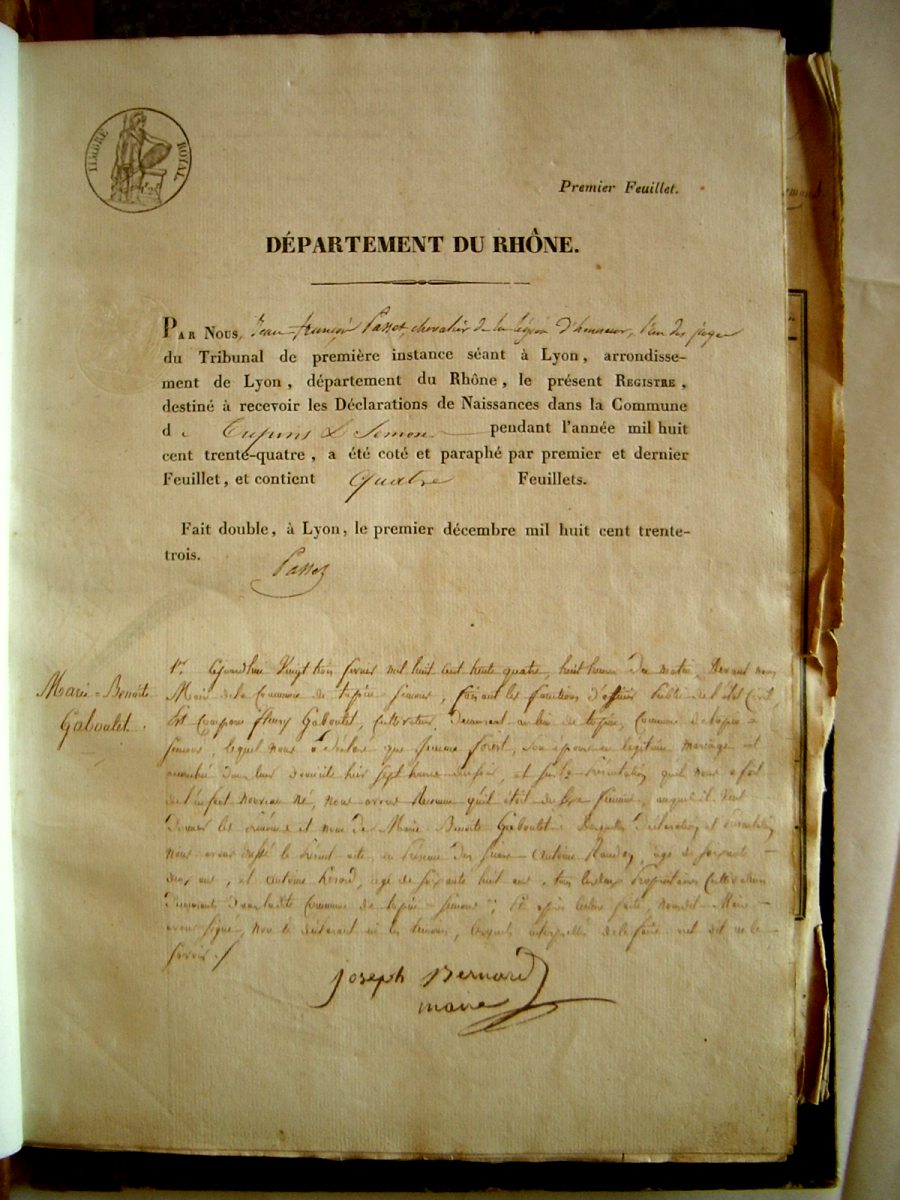 TIMBRE ROYAL.
Premier Feuillet.
DÉPARTEMENT DU RHÔNE.
PAR NOUS, Jean françois Passet, chevalier de la légion d'honneur, l'un des juges
du Tribunal de première instance séant à Lyon, arrondisse-
ment de Lyon, département du Rhône, le présent REGISTRE,
destiné à recevoir les Déclarations de Naissances dans la Commune
d e Tupins & Semons pendant l'année mil huit
cent trente-quatre, a été coté et paraphé par premier et dernier
Feuillet, et contient quatre Feuillets.
Fait double, à Lyon, le premier décembre mil huit cent trente-
trois.
Passet
Marie = Benoite
Gaboulet.
1er Cejourdhui Vingt trois janvier mil huit cent trente quatre, huit heures du matin, Devant nous
Maire de la Commune de tupin = Simons, faisant les fonctions d'officier Public de l'état Civil,
Est Comparu fleury Gaboulet, Cultivateur, Demeurant au lieu de tupin, Commune de tupin =
simons, lequel nous a déclaré que Son épouse en legitime mariage est
accouchée Dans leur Domicile hier Sept heures Du soir, et Sur la présentation quil nous a fait
de l'enfant nouveau né, nous avons Reconnu qu'il étoit du Sexe féminin, auquel il Veut
Donner les prénoms et nom de Marie Benoite Gaboulet = Desquelles Déclaration et
nous avons Dressé le Présent acte, en Présence Des Sieurs Antoine agé de Soixante
ans, et Antoine agé de Soixante huit ans, tous les deux Propriétaires Cultivateurs
Demeurant Dans ladite Commune de tupin = Simons; Et après lecture faite, nousdit Maire
avons Signé, non le déclarant ni les témoins, lesquels interpellés de le faire ont dit ne le
Savoir./
Joseph Bernard
maire